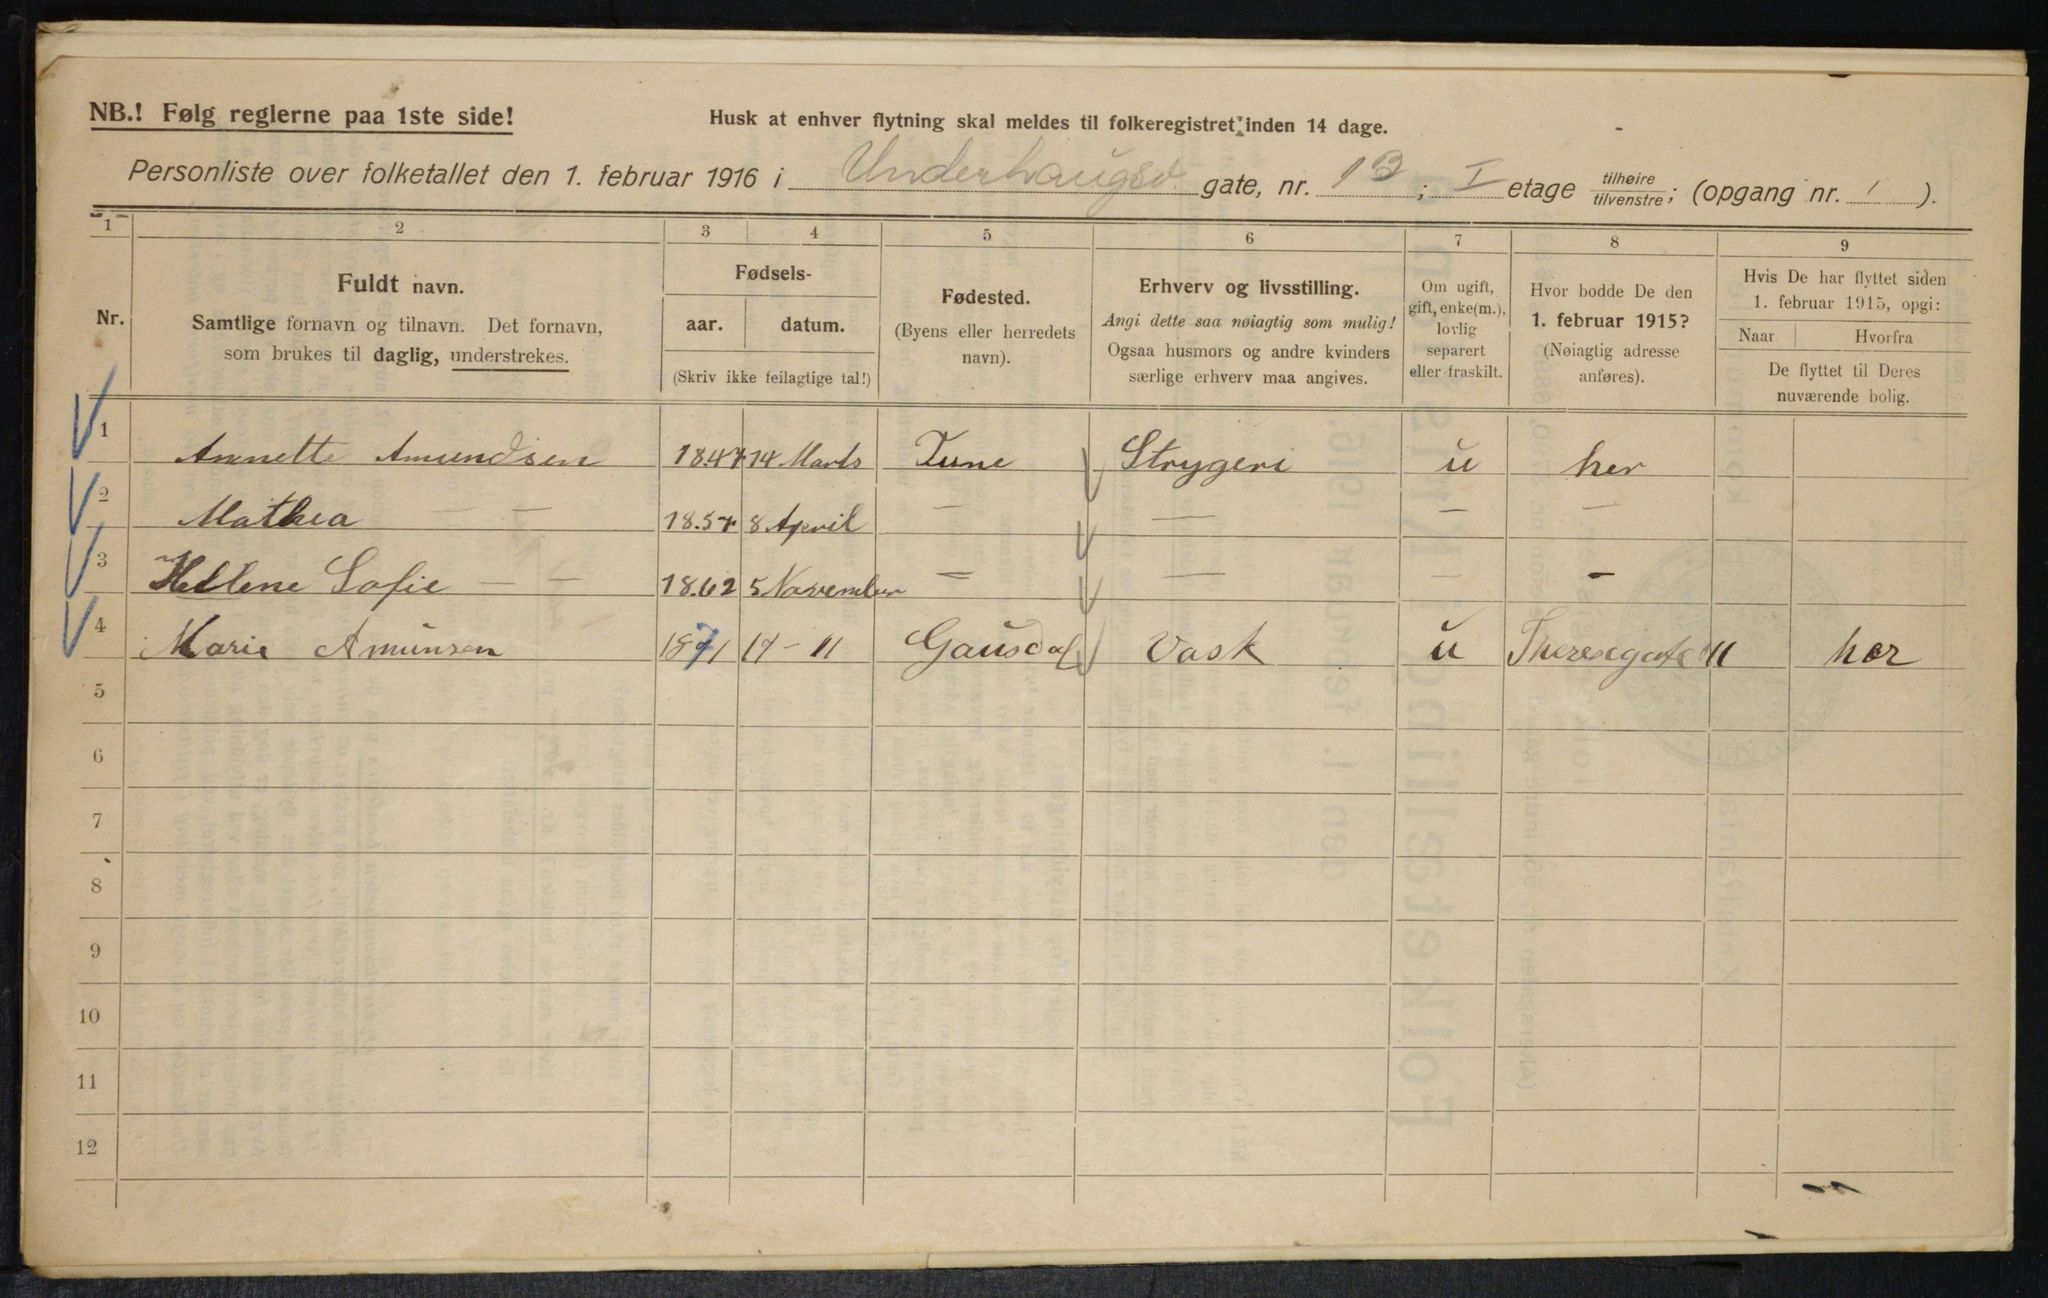 NB.! Følg reglerne paa 1ste side!
Husk at enhver flytning skal meldes til folkeregistret inden 14 dage.
Personliste over folketallet den 1. februar 1916 i Underhaugsv. gate, nr. 1B; I etage tilhøire/tilvenstre; (opgang nr. 1).
1 2 3 4 5 6 7 8 9
Nr.
Fuldt navn.
Samtlige fornavn og tilnavn. Det fornavn,
som brukes til daglig, understrekes.
Fødsels-
aar. datum.
(Skriv ikke feilagtige tal!)
Fødested.
(Byens eller herredets
navn).
Erhverv og livsstilling.
Angi dette saa nøiagtig som mulig!
Ogsaa husmors og andre kvinders
særlige erhverv maa angives.
Om ugift,
gift, enke(m.),
lovlig
separert
eller fraskilt.
Hvor bodde De den
1. februar 1915?
(Nøiagtig adresse
anføres).
Hvis De har flyttet siden
1. februar 1915, opgi:
Naar Hvorfra
De flyttet til Deres
nuværende bolig.
1 Annette Amundsen 1847 14 Marts Tune Strygeri u her
2 Mathea — — 1857 8 April — — — —
3 Hellene Sofie — — 1862 5 November — — — —
4 Marie Amunsen 1871 17 - 11 Gausdal Vask u Theresegate 11 her
5
6
7
8
9
10
11
12